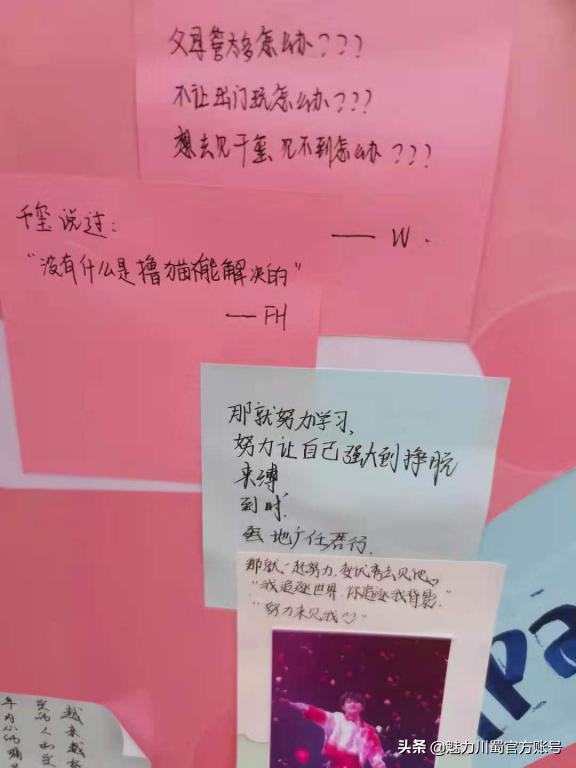 父母管太多怎么办???
不让出门玩怎么办???
想去见千玺 见不到怎么办???
—— W.
千玺说过:
"没有什么是撸猫不能解决的"
—— FH
那就努力学习,
努力让自己强大到挣脱
束缚
到时
天地广任吾行.
那就一起努力,变优秀去见他
"我追逐世界,你追逐我背影."
"努力来见我♡"
越来越
头条 @魅力川蜀官方账号